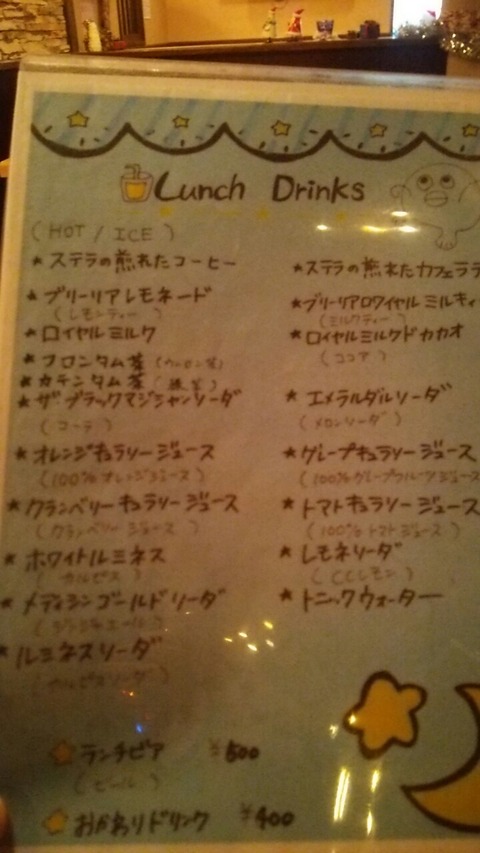 Lunch Drinks
(HOT / ICE)
★ステラの煎れたコーヒー
★ステラの煎れたカフェララ
★ブリーリアレモネード
(レモンティー)
★ブリーリアロワイヤルミルキィ
(ミルクティー)
★ロイヤルミルク
★ロイヤルミルクドカカオ
(ココア)
★フロンタム茶(ウーロン茶)
★カテンタム茶(緑茶)
★ザブラックマジシャンソーダ
(コーラ)
★エメラルダルソーダ
(メロンソーダ)
★オレンジキュラソージュース
(100%オレンジジュース)
★グレープキュラソージュース
(100%グレープフルーツジュース
★クランベリーキュラソージュース
(クランベリージュース)
★トマトキュラソージュース
(100%トマトジュース)
★ホワイトルミネス
(カルピス)
★レモネソーダ
(CCレモン)
★メディシンゴールドソーダ
(ジンジャエール)
★トニックウォーター
★ルミネスソーダ
(カルピスソーダ)
ランチビア ¥500
(ビール)
おかわりドリンク ¥400